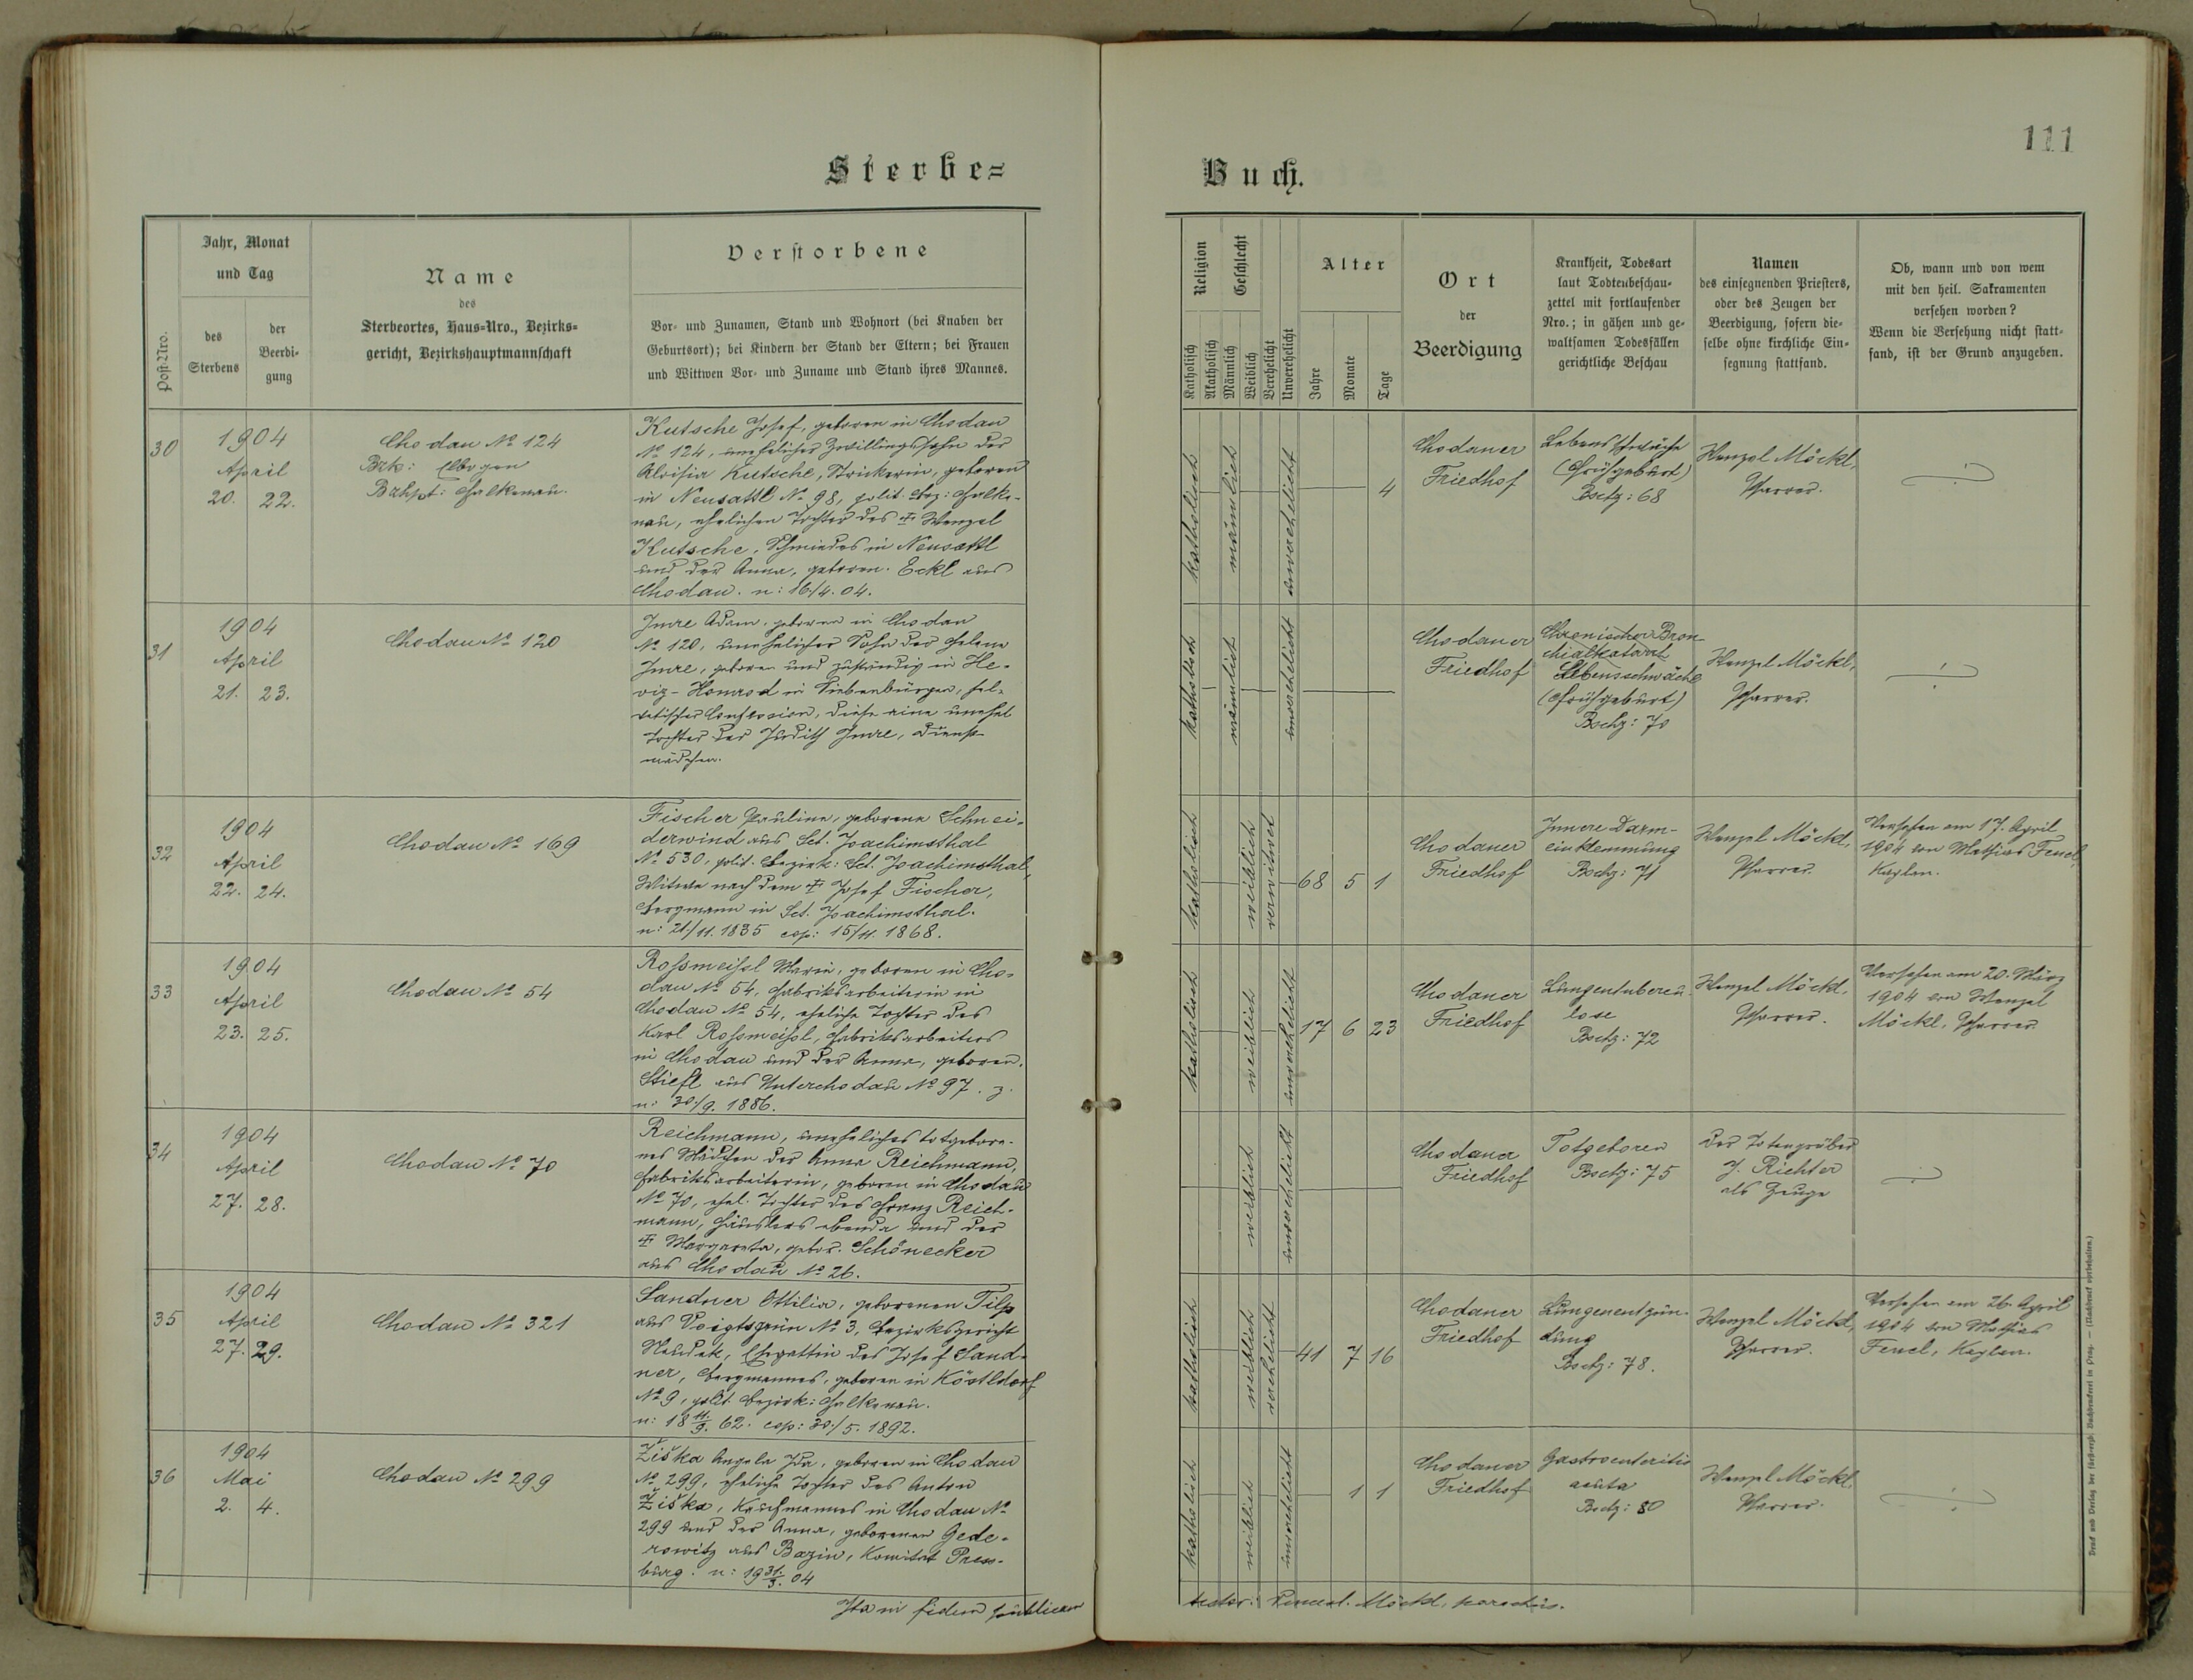 111
Sterbe=
Buch.
Post-Nro.
Jahr, Monat
und Tag
des
Sterbens
der
Beerdi-
gung
Name
des
Sterbeortes, Haus-Nro., Bezirks-
gericht, Bezirkshauptmannschaft
Verstorbene
Vor- und Zunamen, Stand und Wohnort (bei Knaben der
Geburtsort); bei Kindern der Stand der Eltern; bei Frauen
und Wittwen Vor- und Zuname und Stand ihres Mannes.
Religion
Katholisch
Akatholisch
Geschlecht
Männlich
Weiblich
Verehelicht
Unverehelicht
Alter
Jahre
Monate
Tage
Ort
der
Beerdigung
Krankheit, Todesart
laut Todtenbeschau-
zettel mit fortlaufender
Nro.; in gähen und ge-
waltsamen Todesfällen
gerichtliche Beschau
Namen
des einsegnenden Priesters,
oder des Zeugen der
Beerdigung, sofern die-
selbe ohne kirchliche Ein-
segnung stattfand.
Ob, wann und von wem
mit den heil. Sakramenten
versehen worden?
Wenn die Versehung nicht statt-
fand, ist der Grund anzugeben.
30
1904
April
20. 22.
Chodau No 124
Bzk: Elbogen
Bzhpt: Falkenau.
Kutsche Josef, geboren in Chodau
No 124, unehelicher Zwillingssohn der
Aloisia Kutsche, Strickerin, geboren
in Neusattl No 98, polit. Bez: Falke-
nau, ehelichen Tochter des † Wenzel
Kutsche, Schmiedes in Neusattl
und der Anna, geboren. Eckl aus
Chodau. n: 16/4. 04.
katholisch
männlich
unverehelicht
4
Chodauer
Friedhof
Lebensschwäche
(Frühgeburt)
Bschz: 68
Wenzel Möckl,
Pfarrer.
31
1904
April
21. 23.
Chodau No 120
Imre Adam, geboren in Chodau
No 120, unehelicher Sohn der Helene
Imre, geboren und zuständig in He-
viz-Homrod in Siebenbürgen, hel-
vetischer Confession, diese eine unehel
Tochter der Judith Imre, Dienst-
mädchen.
katholisch
männlich
unverehelicht
Chodauer
Friedhof
Chronischer Bron-
chialkatarrh
Lebensschwäche
(Frühgeburt)
Bschz: 70
Wenzel Möckl,
Pfarrer.
32
1904
April
22. 24.
Chodau No 169
Fischer Pauline, geborene Schnei-
derwind aus Sct. Joachimsthal
No 530, polit. Bezirk: Sct. Joachimsthal,
Witwe nach dem † Josef Fischer,
Bergmann in Sct. Joachimsthal.
n: 21/11. 1835 cop: 15/11. 1868.
katholisch
weiblich
verwitwet
68 5 1
Chodauer
Friedhof
Innere Darm-
einklemmung
Bschz: 71
Wenzel Möckl,
Pfarrer.
Versehen am 17. April
1904 von Mathias Feuel,
Kaplan.
33
1904
April
23. 25.
Chodau No 54
Rossmeissl Marie, geboren in Cho-
dau No 54, Fabriksarbeiterin in
Chodau No 54, eheliche Tochter des
Karl Rossmeissl, Fabriksarbeiters
in Chodau und der Anna, geboren.
Stiefl aus Unterchodau No 97.
n: 30/9. 1886.
katholisch
weiblich
unverehelicht
17 6 23
Chodauer
Friedhof
Lungentuberku-
lose
Bschz: 72
Wenzel Möckl,
Pfarrer.
Versehen am 20. März
1904 von Wenzel
Möckl, Pfarrer
34
1904
April
27. 28.
Chodau No 70
Reichmann, uneheliches totgebore-
nes Mädchen der Anna Reichmann,
Fabriksarbeiterin, geboren in Chodau
No 70, ehel. Tochter des Franz Reich-
mann, Häuslers ebenda und der
† Margareta, gebor. Schönecker
aus Chodau No 26.
weiblich
unverehelicht
Chodauer
Friedhof
Totgeboren
Bschz: 75
Der Totengräber
J. Richter
als Zeuge
35
1904
April
27. 29.
Chodau No 321
Sandner Ottilia, geborenen Tilp
aus Voigtsgrün No 3, Bezirksgericht
Neudek, Ehegattin des Josef Sand-
ner, Bergmannes, geboren in Köstldorf
No 9, polit. Bezirk: Falkenau.
n: 18 11/9. 62. cop: 30/5. 1892.
katholisch
weiblich
verehelicht
41 7 16
Chodauer
Friedhof
Lungenentzün-
dung
Bschz: 78.
Wenzel Möckl,
Pfarrer.
Versehen am 26. April
1904 von Mathias
Feuel, Kaplan.
36
1904
Mai
2. 4.
Chodau No 299
Žiška Angela Ida, geboren in Chodau
No 299, eheliche Tochter des Anton
Žiška, Kaufmannes in Chodau No
299 und der Anna, geborenen Gede-
rowitz aus Bazin, Komitat Press-
burg. n: 19 31/3. 04
katholisch
weiblich
unverehelicht
1 1
Chodauer
Friedhof
Gastroenteritis
acuta
Bschz: 80
Wenzel Möckl,
Pfarrer.
Ita in fidem publicam
testor: Möckl, parochus.
Druck und Verlag der fürst-erzb. Buchdruckerei in Prag. — (Nachdruck vorbehalten.)